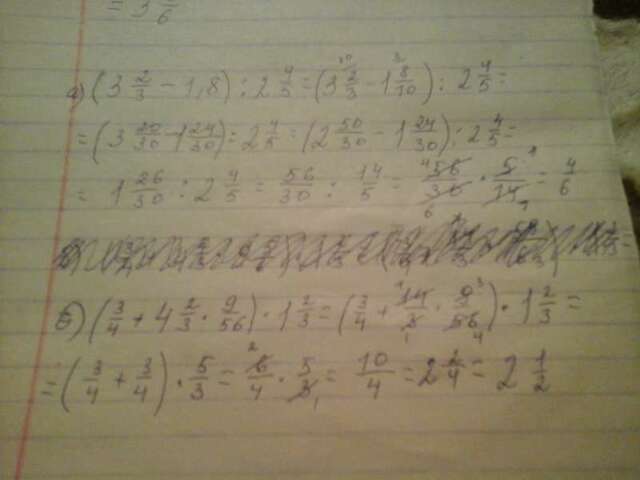 = 3 5/6
а) (3 2/3 - 1,8) : 2 4/5 = (3 2/3 - 1 8/10) : 2 4/5 =
= (3 20/30 - 1 24/30) : 2 4/5 = (2 50/30 - 1 24/30) : 2 4/5 =
= 1 26/30 : 2 4/5 = 56/30 : 14/5 = 56/30 · 5/14 = 4/6
б) (3/4 + 4 2/3 · 9/56) · 1 2/3 = (3/4 + 14/3 · 9/56) · 1 2/3 =
= (3/4 + 3/4) · 5/3 = 6/4 · 5/3 = 10/4 = 2 2/4 = 2 1/2